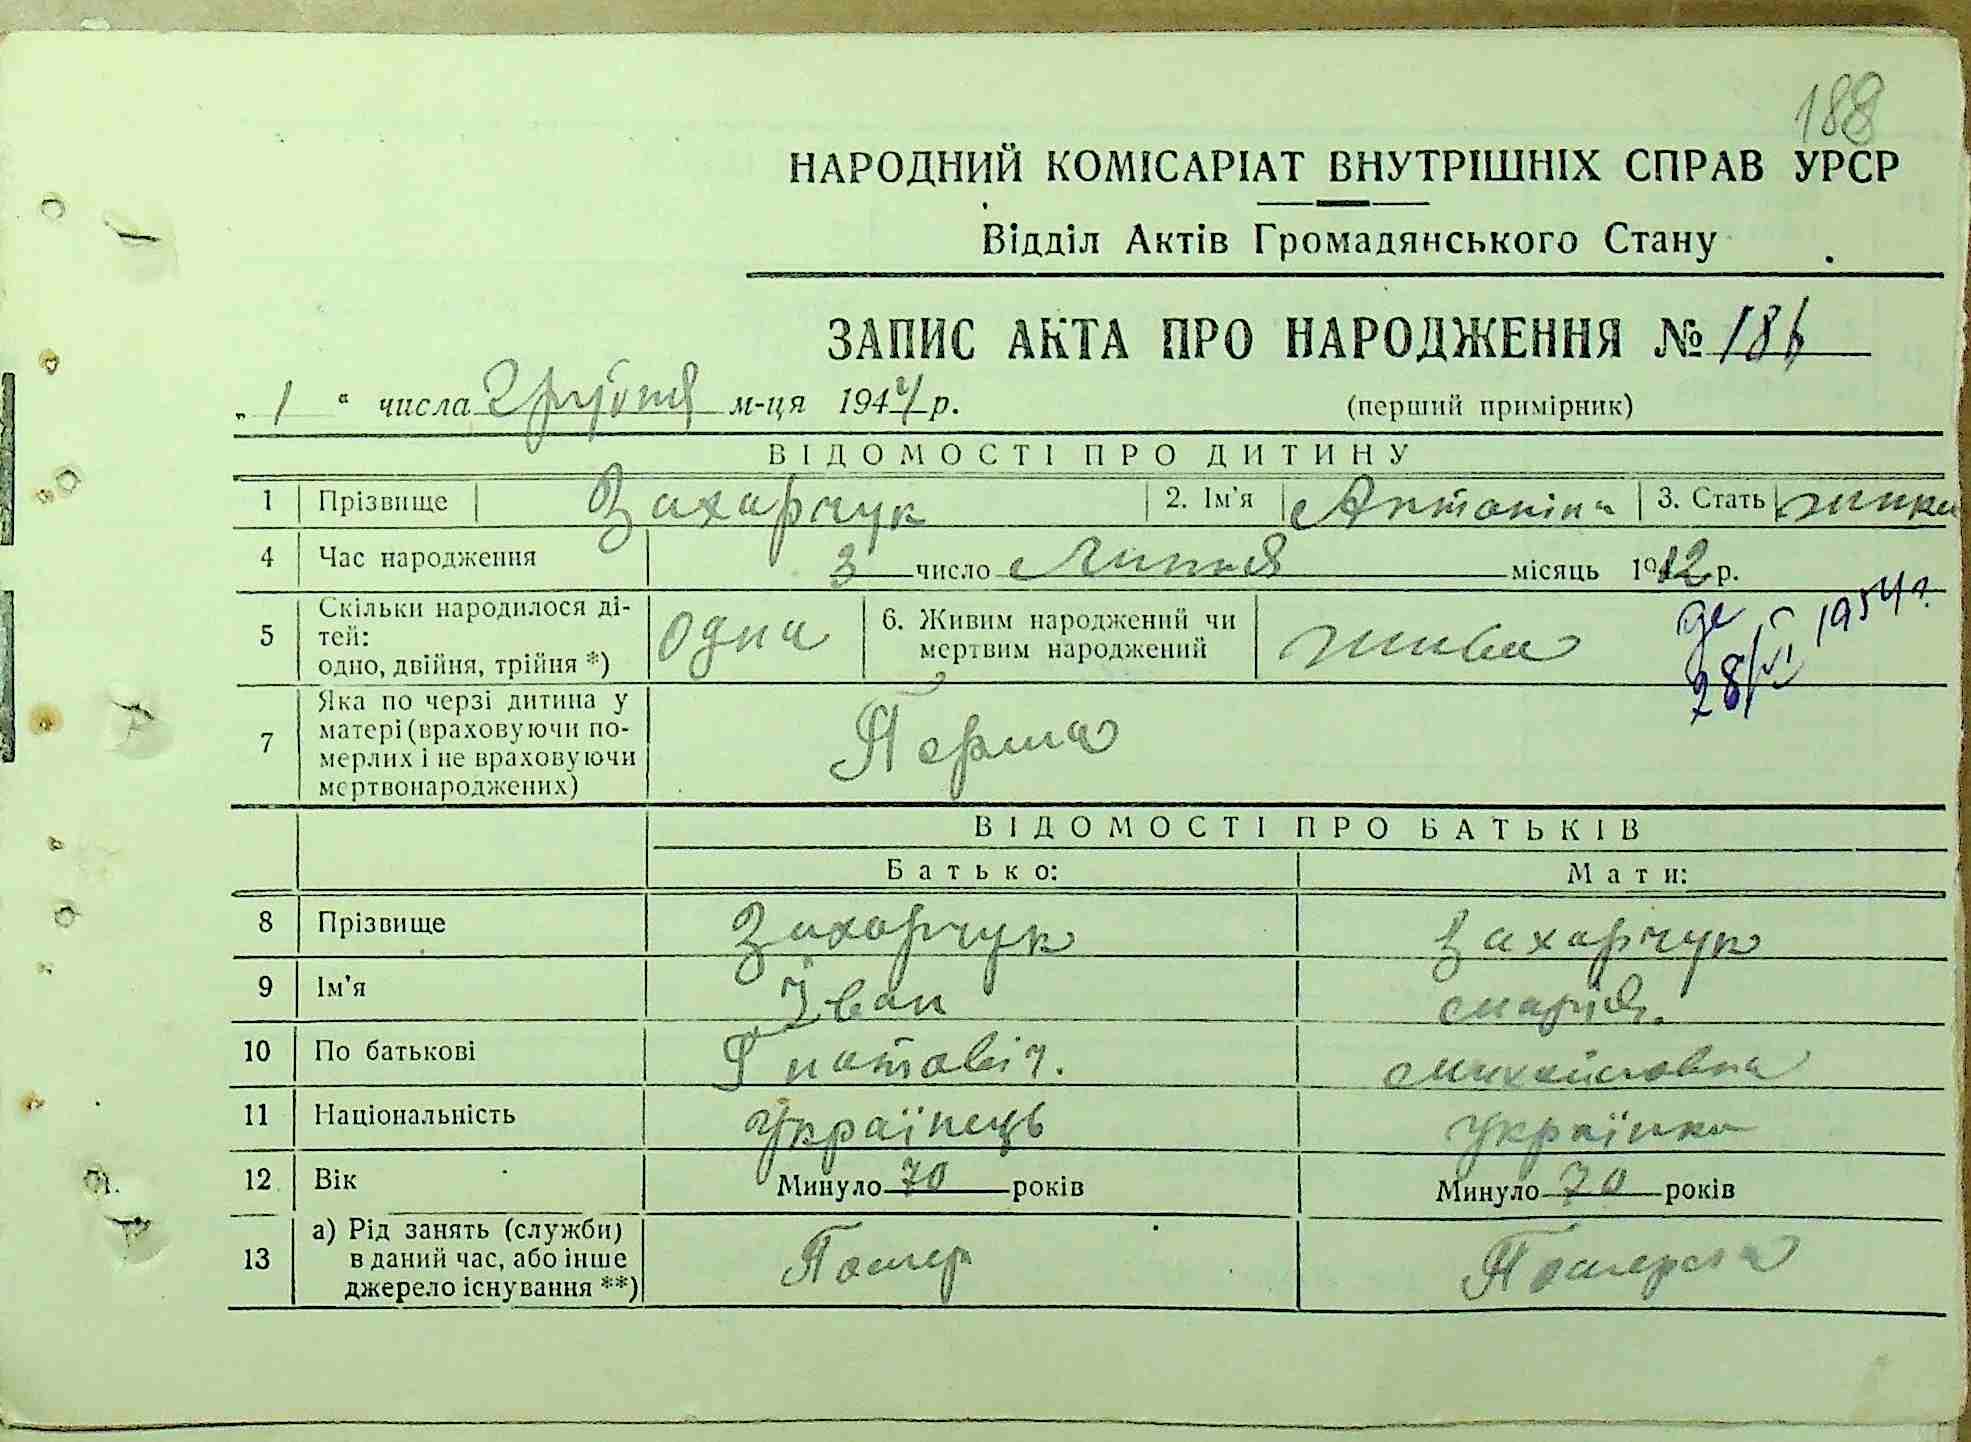 188
НАРОДНИЙ КОМІСАРІАТ ВНУТРІШНІХ СПРАВ УРСР
Відділ Актів Громадянського Стану
ЗАПИС АКТА ПРО НАРОДЖЕННЯ № 186
„ 1 “ числа грудня м-ця 1944 р.
(перший примірник)
ВІДОМОСТІ ПРО ДИТИНУ
1 Прізвище Захарчук 2. Ім'я Антоніна 3. Стать жінка
4 Час народження 3 число Липня місяць 1912 р.
5 Скільки народилося ді-
тей:
одно, двійня, трійня *) одна 6. Живим народжений чи
мертвим народжений жива
28/VI 1954 г.
7 Яка по черзі дитина у
матері (враховуючи по-
мерлих і не враховуючи
мертвонароджених) Перша
ВІДОМОСТІ ПРО БАТЬКІВ
Батько: Мати:
8 Прізвище Захарчук Захарчук
9 Ім'я Іван Марія.
10 По батькові Гнатовіч. Михайловна
11 Національність Українець Українка
12 Вік Минуло 70 років Минуло 70 років
13 а) Рід занять (служби)
в даний час, або інше
джерело існування **) Помер Померла